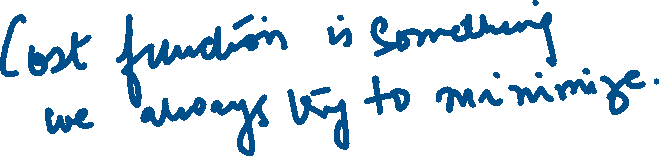 Cost function is something
we always try to minimize.